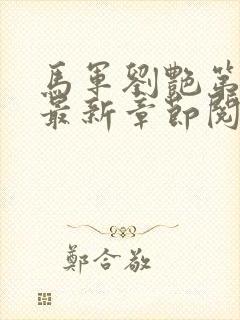 馬軍劉艷第
最新章節閱
鄭合敬